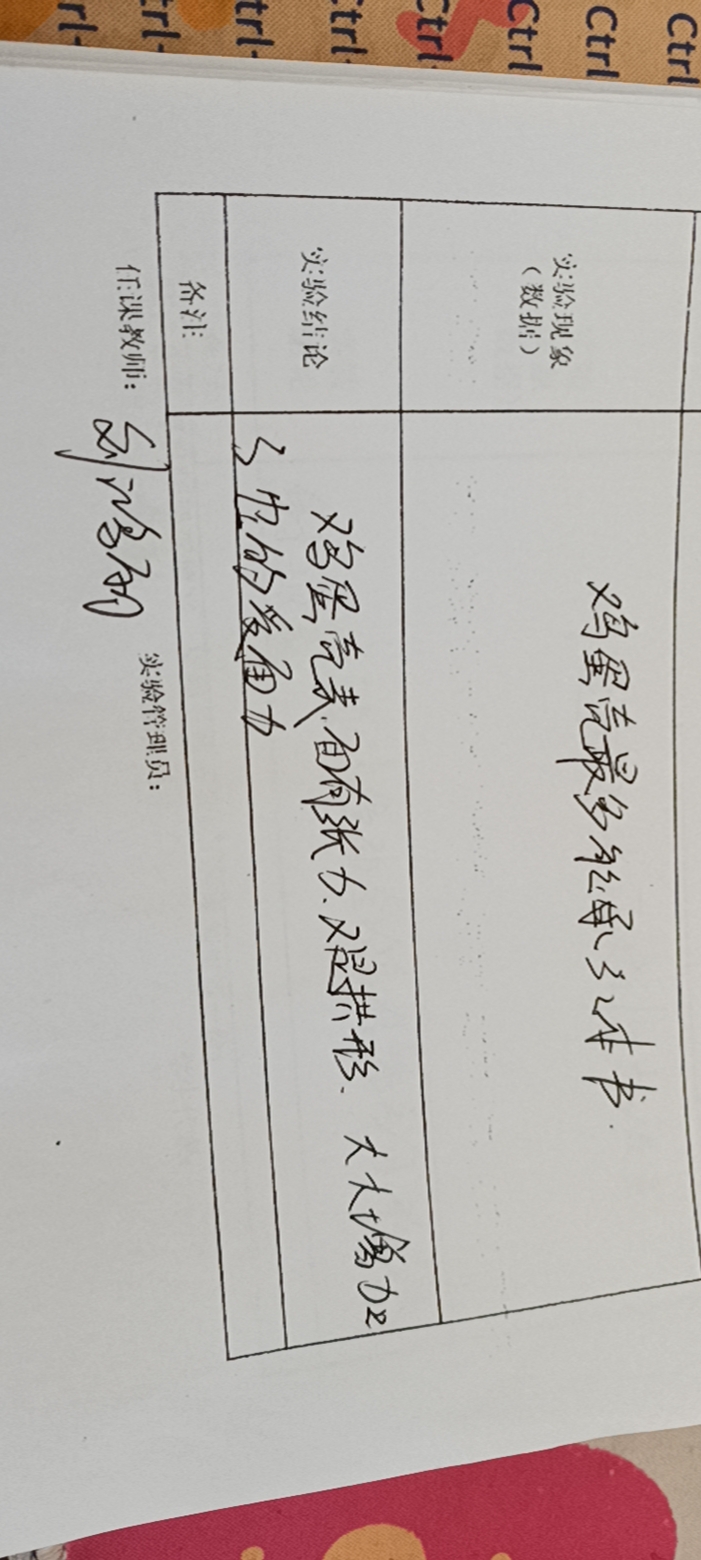 Ctrl
Ctrl
Ctrl
Ctrl
Ctrl
trl-
trl-
rl-
实验现象
(数据)
鸡蛋壳最多能承3本书.
实验结论
鸡蛋壳表面有张力、又是拱形、大大增加
了它的受面力
备注
任课教师:
实验管理员: